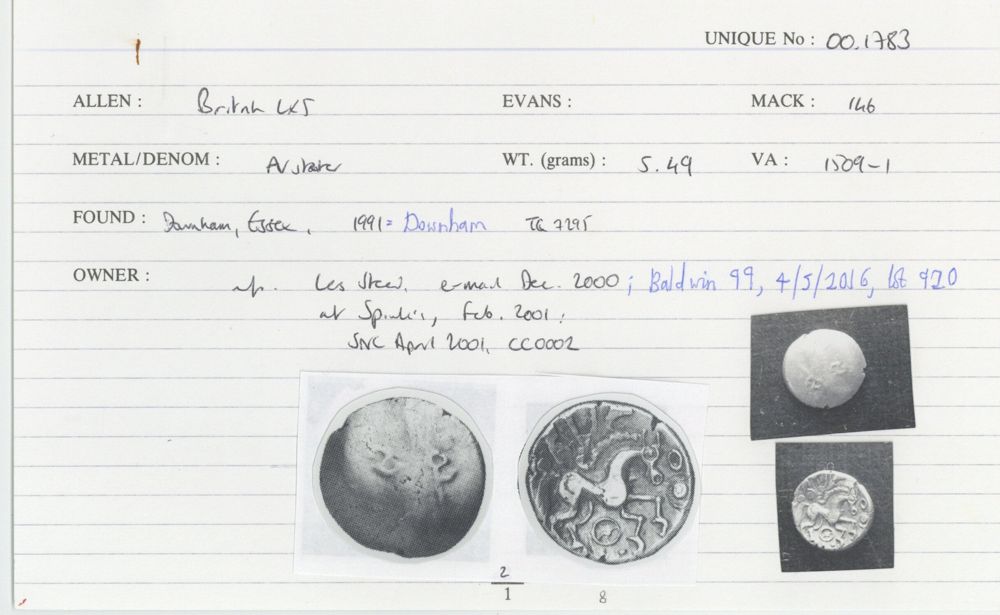 UNIQUE No : 00.1783
ALLEN : British LX5 EVANS : MACK : 146
METAL/DENOM : AV stater WT. (grams) : 5.49 VA : 1509-1
FOUND : Downham, Essex, 1991 = Downham TQ 7295
OWNER : Les Steed, e-mail Dec. 2000; Baldwin 99, 4/5/2016, lot 920
at Spink's, Feb. 2001;
SNC April 2001, CC0002
2
1 8